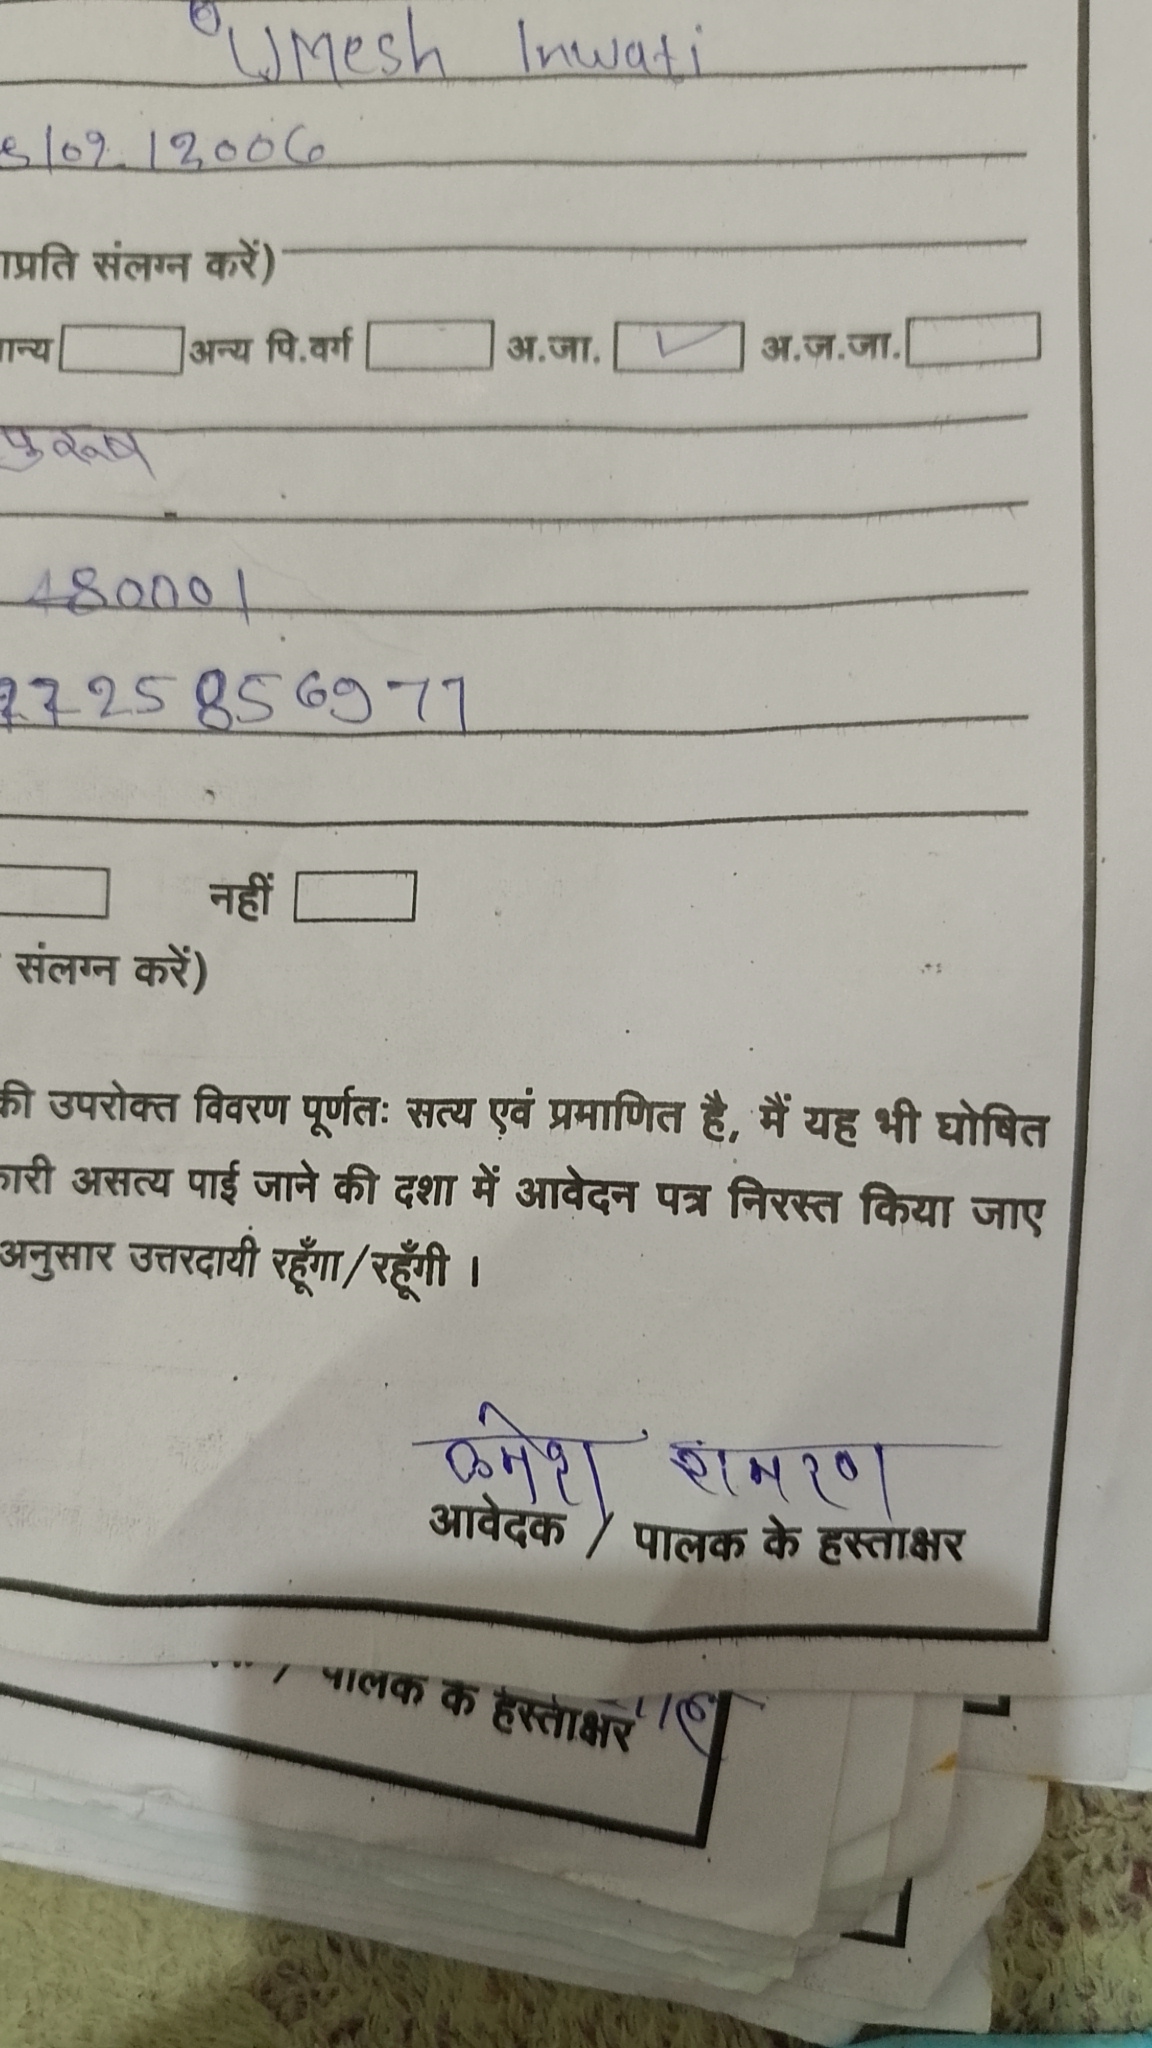 Umesh Inwati
5/09/2006
ाप्रति संलग्न करें)
ान्य अन्य पि.वर्ग अ.जा. ✓ अ.ज.जा.
पुरूष
480001
7725856977
नहीं
संलग्न करें)
की उपरोक्त विवरण पूर्णतः सत्य एवं प्रमाणित है, मैं यह भी घोषित
कारी असत्य पाई जाने की दशा में आवेदन पत्र निरस्त किया जाए
अनुसार उत्तरदायी रहूँगा/रहूँगी ।
आवेदक / पालक के हस्ताक्षर
/ पालक के हस्ताक्षर